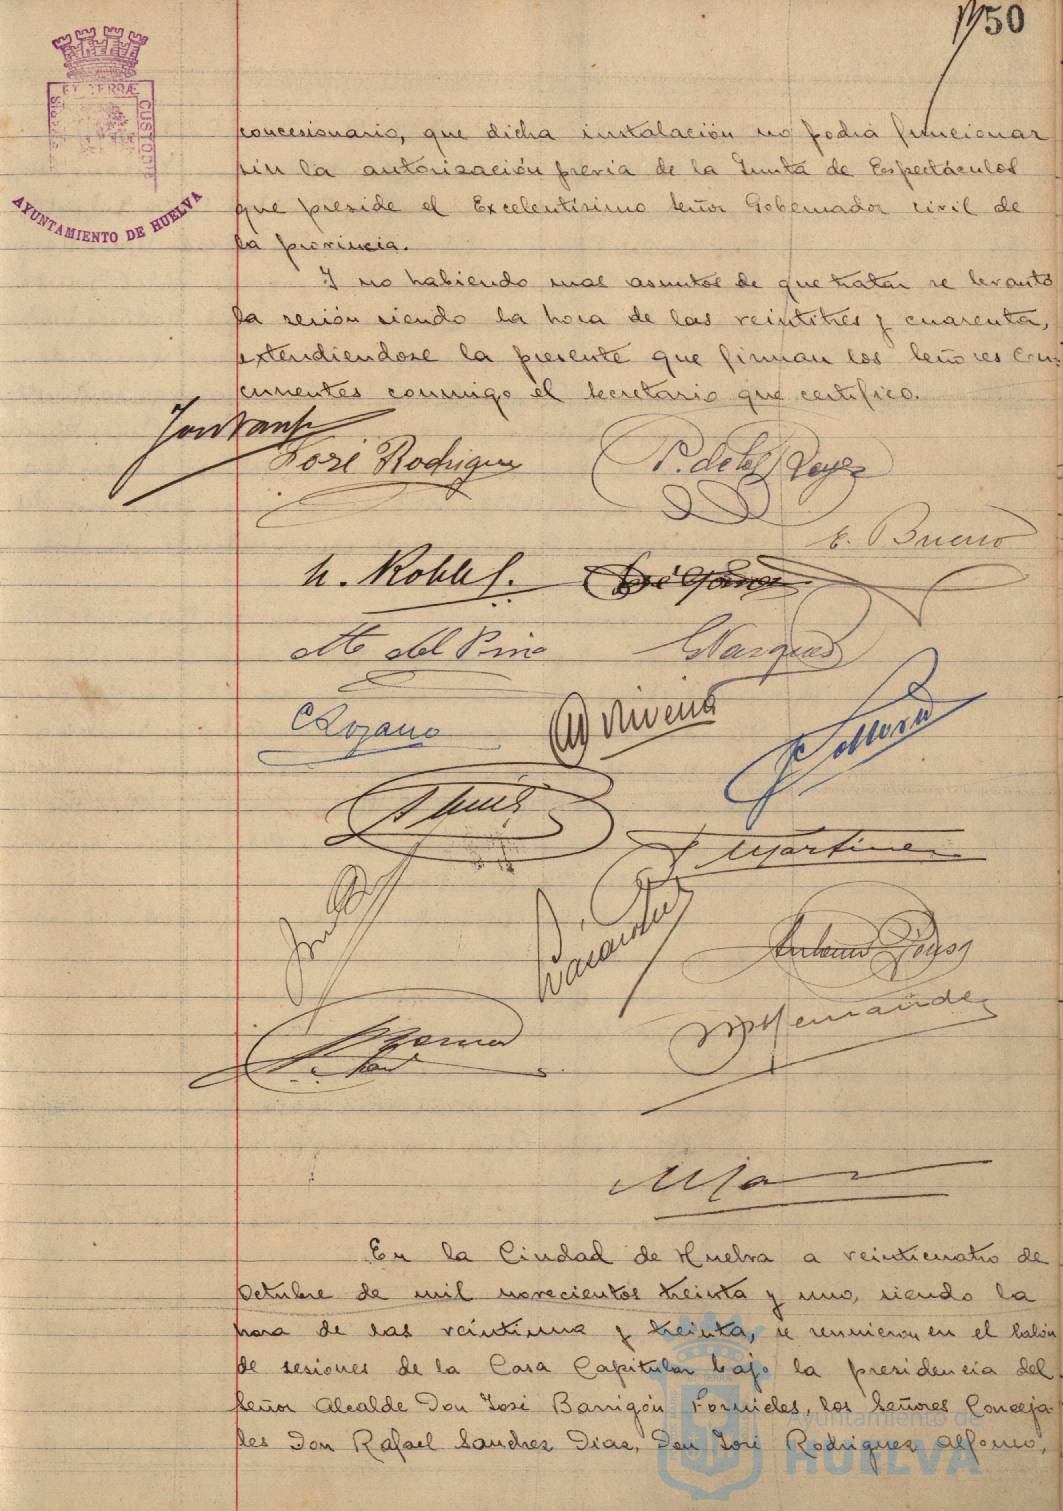 50
PORTUS MARIS
ET TERRÆ
CUSTODIA
AYUNTAMIENTO DE HUELVA
concesionario, que dicha instalación no podrá funcionar
sin la autorización previa de la Junta de Espectáculos
que preside el Excelentísimo Señor Gobernador civil de
la provincia.
Y no habiendo mas asuntos de que tratar se levantó
la sesión siendo la hora de las veintitres y cuarenta,
extendiendose la presente que firman los Señores Con-
currentes conmigo el secretario que certifico.
José Rodriguez
P. de los Reyes
E. Bueno
R. Robles.
José Gómez
M. del Pino
E Vazquez
C Lozano
Rivera
T Martinez
Antonio Pousa
Hernández
En la Ciudad de Huelva a veinticuatro de
Octubre de mil novecientos treinta y uno, siendo la
hora de las veintiuna y treinta, se reunieron en el Salón
de sesiones de la Casa Capitular bajo la presidencia del
Señor Alcalde Don José Barrigón Fornieles, los Señores Conceja-
les Don Rafael Sanchez Diaz, Don José Rodriguez Alfonso,
Ayuntamiento de
HUELVA